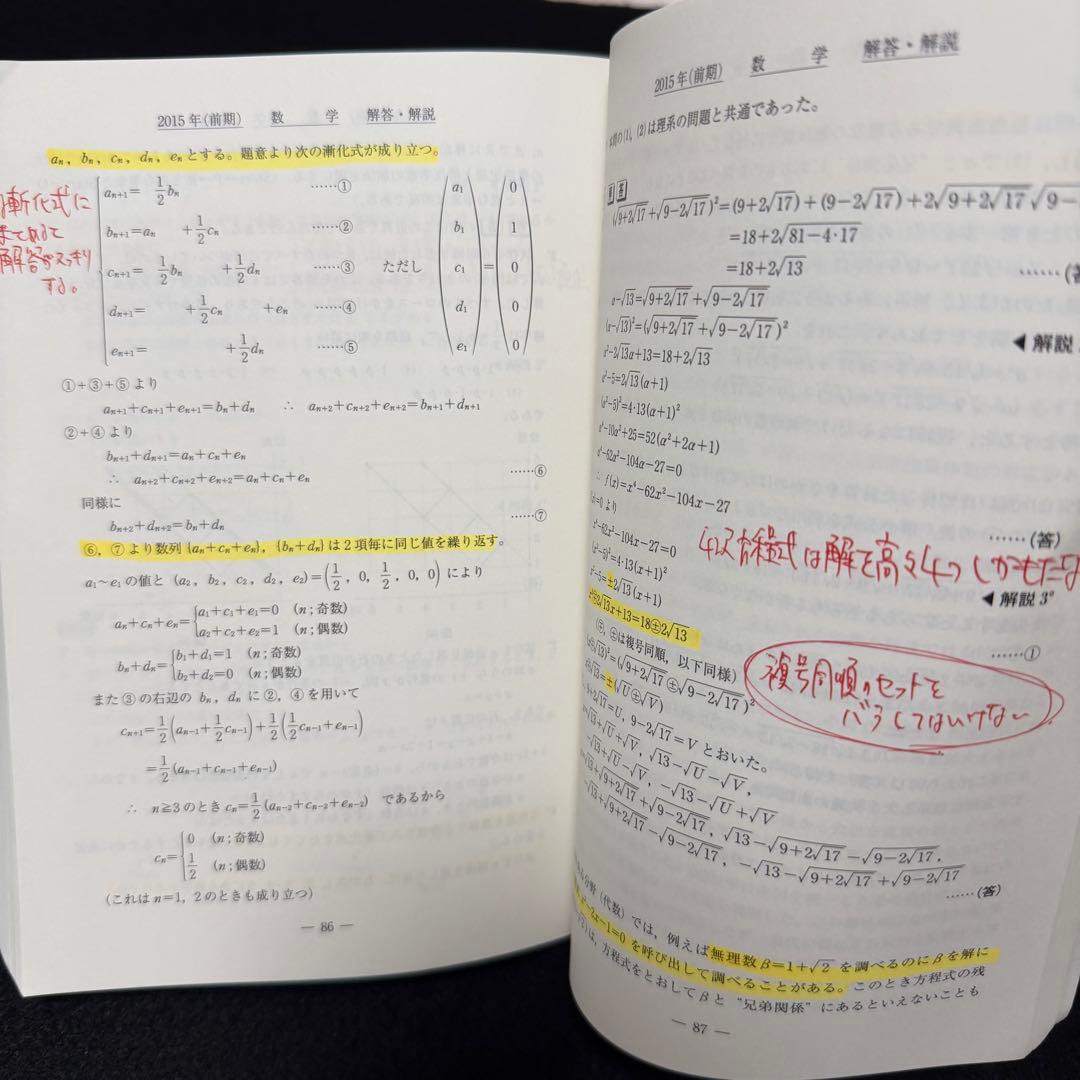 2015年(前期) 数 学 解答・解説
aₙ, bₙ, cₙ, dₙ, eₙとする。題意より次の漸化式が成り立つ。
漸化式に
まとめると
解答がスッキリ
する。
aₙ₊₁= 1/2 bₙ ……①
bₙ₊₁=aₙ +1/2 cₙ ……②
cₙ₊₁= 1/2 bₙ +1/2 dₙ ……③ ただし (a₁ b₁ c₁ d₁ e₁)=(0 1 0 0 0)
dₙ₊₁= +1/2 cₙ +eₙ ……④
eₙ₊₁= +1/2 dₙ ……⑤
①+③+⑤より
aₙ₊₁+cₙ₊₁+eₙ₊₁=bₙ+dₙ ∴ aₙ₊₂+cₙ₊₂+eₙ₊₂=bₙ₊₁+dₙ₊₁
②+④より
bₙ₊₁+dₙ₊₁=aₙ+cₙ+eₙ
∴ aₙ₊₂+cₙ₊₂+eₙ₊₂=aₙ+cₙ+eₙ ……⑥
同様に
bₙ₊₂+dₙ₊₂=bₙ+dₙ ……⑦
⑥, ⑦より数列{aₙ+cₙ+eₙ}, {bₙ+dₙ}は2項毎に同じ値を繰り返す。
a₁~e₁の値と (a₂, b₂, c₂, d₂, e₂)=(1/2, 0, 1/2, 0, 0) により
aₙ+cₙ+eₙ={a₁+c₁+e₁=0 (n;奇数)
a₂+c₂+e₂=1 (n;偶数)
bₙ+dₙ={b₁+d₁=1 (n;奇数)
b₂+d₂=0 (n;偶数)
また③の右辺の bₙ, dₙに②, ④を用いて
cₙ₊₁=1/2(aₙ₋₁+1/2 cₙ₋₁)+1/2(1/2 cₙ₋₁+eₙ₋₁)
=1/2(aₙ₋₁+cₙ₋₁+eₙ₋₁)
∴ n≧3のときcₙ=1/2(aₙ₋₂+cₙ₋₂+eₙ₋₂) であるから
cₙ={0 (n;奇数)
1/2 (n;偶数)
(これはn=1, 2のときも成り立つ)
— 86 —
2015年(前期) 数 学 解答・解説
の(1), (2)は理系の問題と共通であった。
(√(9+2√17)+√(9−2√17))²=(9+2√17)+(9−2√17)+2√(9+2√17)√(9−
=18+2√(81−4·17)
=18+2√13
……(答
α−√13=√(9+2√17)+√(9−2√17)
(α−√13)²=(√(9+2√17)+√(9−2√17))²
◀解説
α²−2√13α+13=18+2√13
α²−5=2√13(α+1)
(α²−5)²=4·13(α+1)²
α⁴−10α²+25=52(α²+2α+1)
α⁴−62α²−104α−27=0
∴ f(x)=x⁴−62x²−104x−27
……(答)
=0 より
x⁴−62x²−104x−27=0
4次方程式は解を高々4つしかもたな
(x²−5)²=4·13(x+1)²
◀解説3°
x²−5=±2√13(x+1)
……①
x²∓2√13x+13=18±2√13
±は複号同順, 以下同様)
複号同順のセットを
バラしてはいけない
√13)²=(√(9+2√17)±√(9−2√17))²
√13=±(√U±√V)
9+2√17=U, 9−2√17=Vとおいた。
√13+√U+√V, √13−√U−√V,
−√13+√U−√V, −√13−√U+√V
√13+√(9+2√17)+√(9−2√17), √13−√(9+2√17)−√(9−2√17),
−√13+√(9+2√17)−√(9−2√17), −√13−√(9+2√17)+√(9−2√17)
……(答)
分野(代数)では, 例えば無理数β=1+√2を調べるのにβを解に
x²−2x−1=0を呼び出して調べることがある。このとき方程式の残
は, 方程式をとおしてβと“兄弟関係”にあるといえないことも
— 87 —